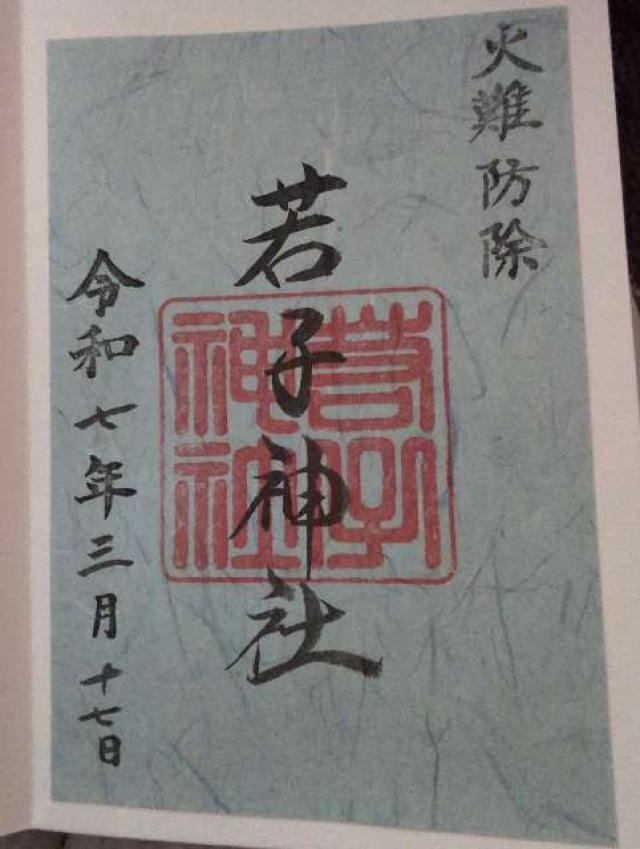 火難防除
若子神社
若子神社
令和七年三月十七日